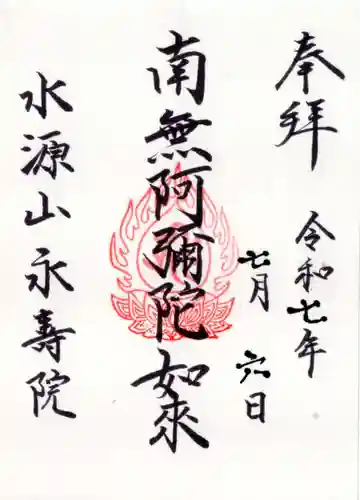 奉拝
令和七年
七月六日
南無阿彌陀如來
水源山永壽院